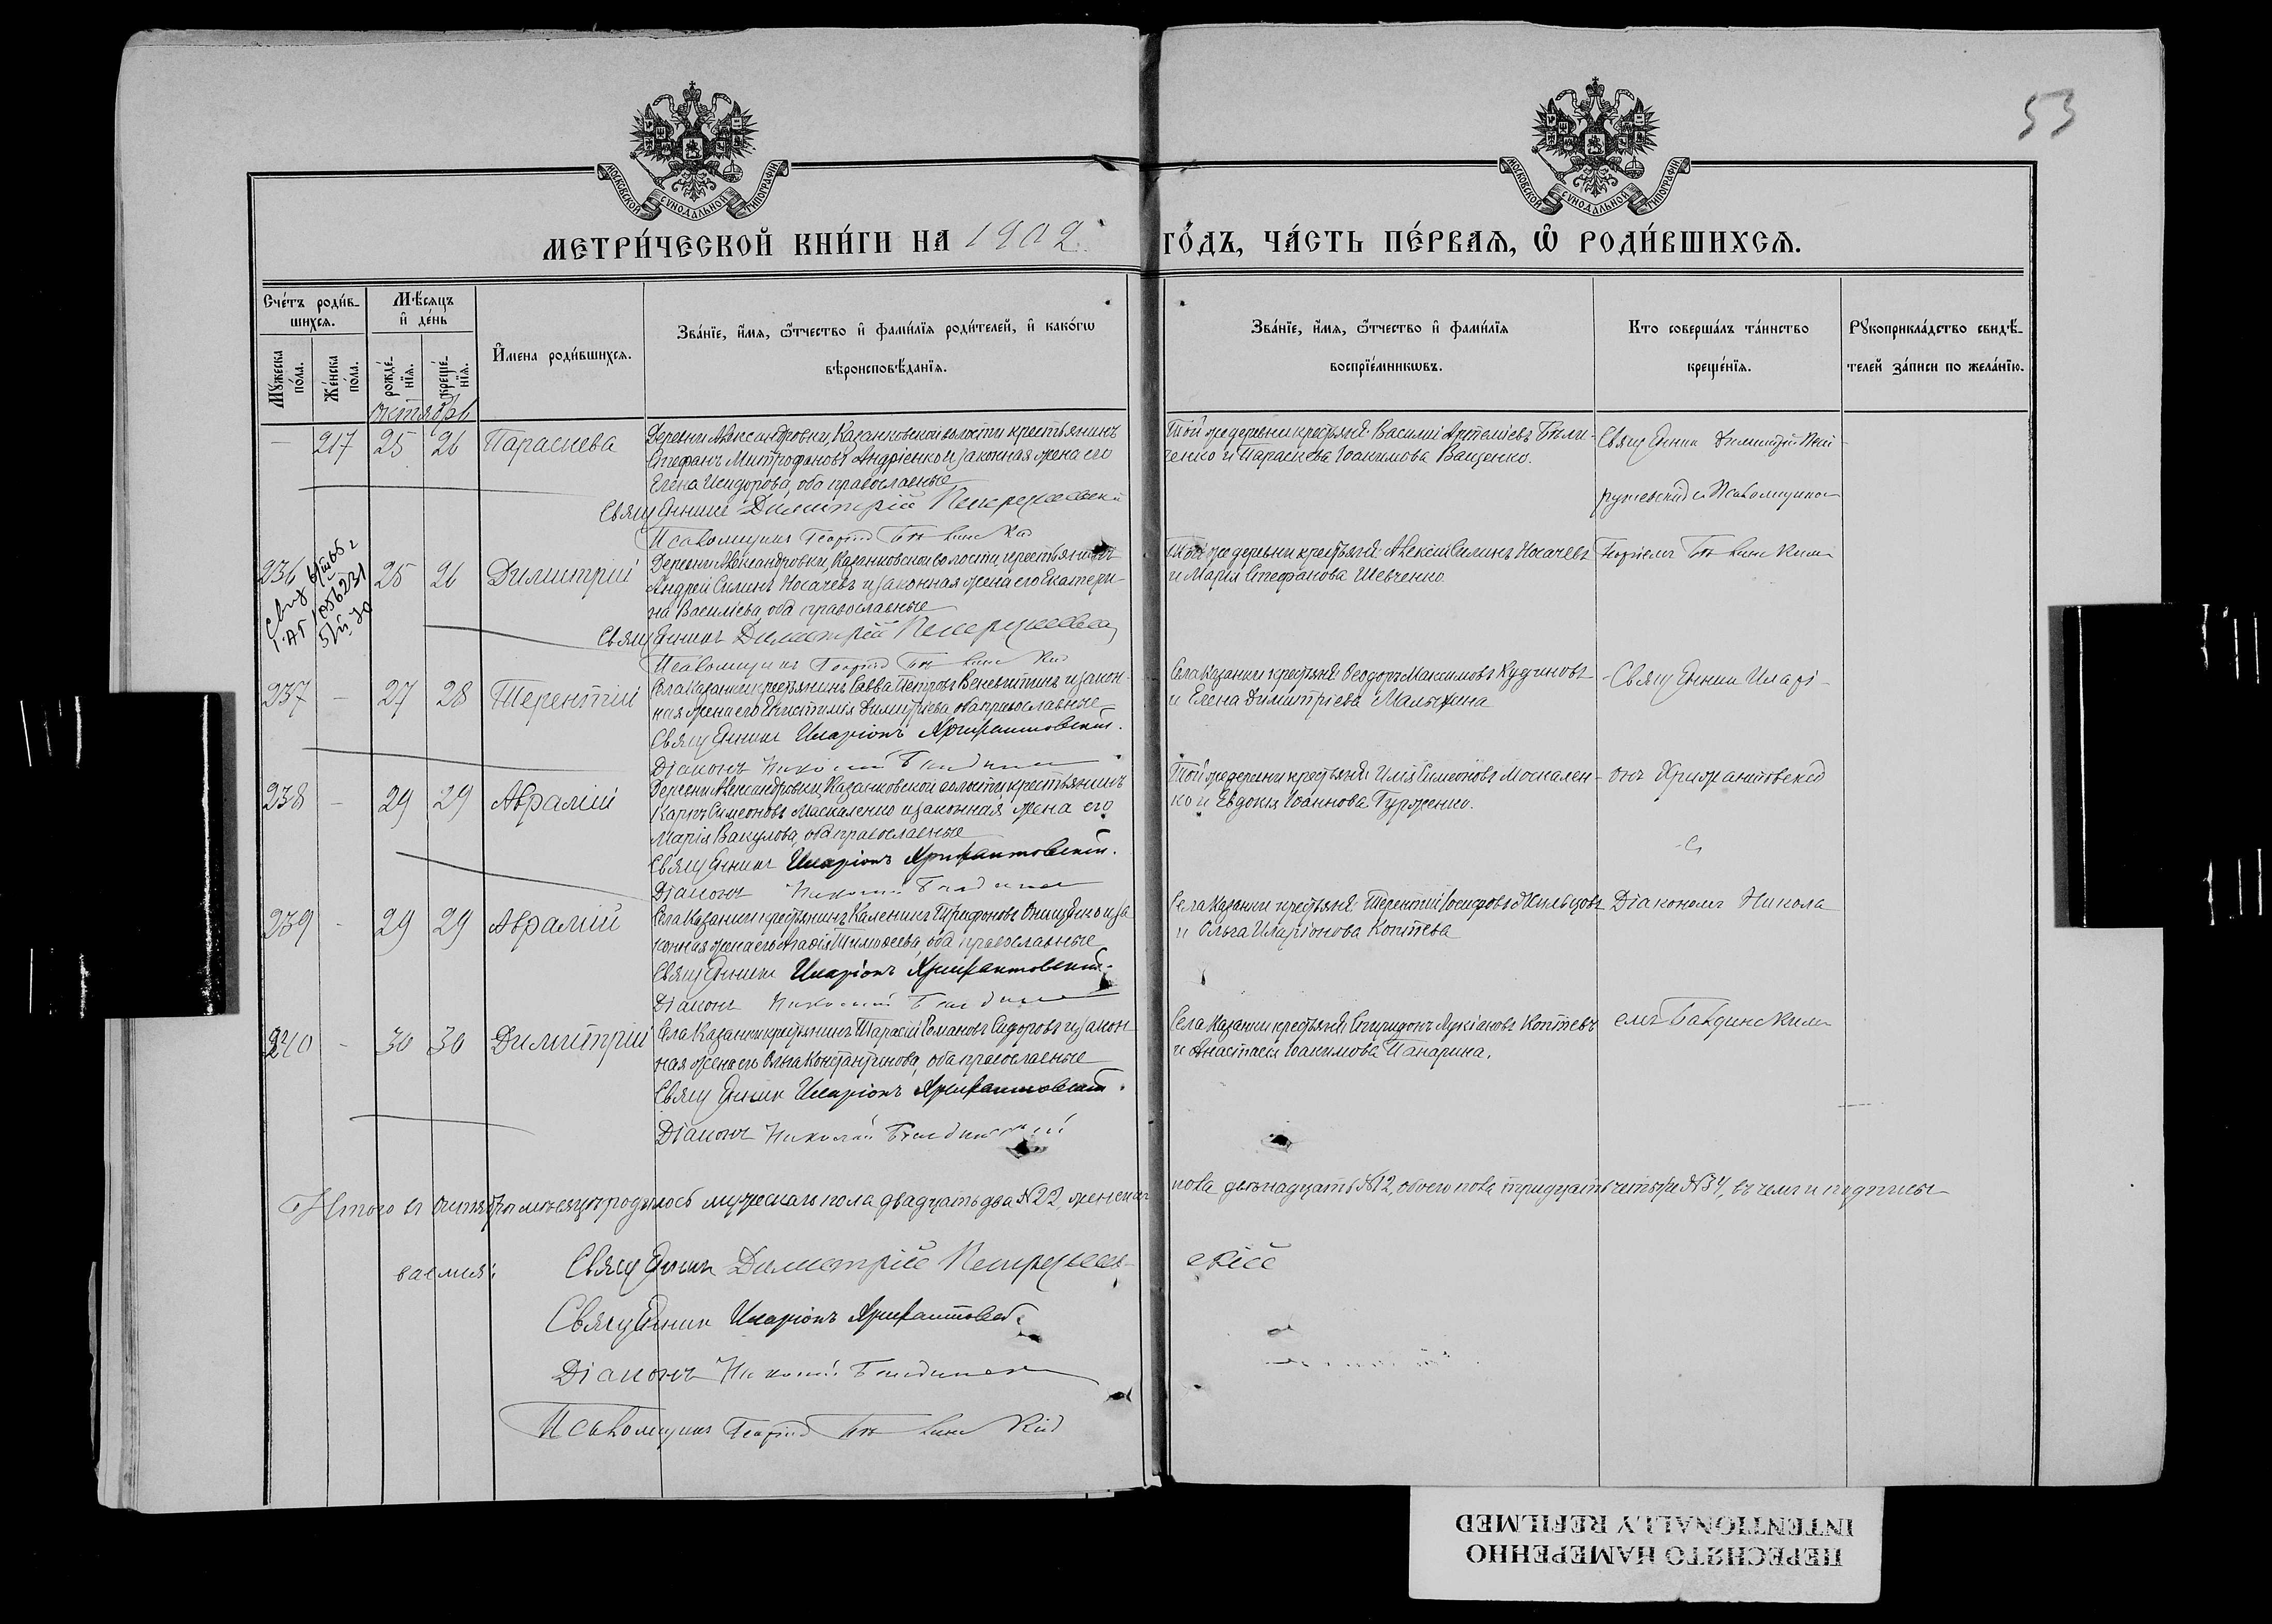 53
МОСКОВСКОЙ СУНОДАЛЬНОЙ ТИПОГРАФІИ
МОСКОВСКОЙ СУНОДАЛЬНОЙ ТИПОГРАФІИ
МЕТРИ́ЧЕСКОЙ КНИ́ГИ НА 1902 ГО́ДЪ, ЧА́СТЬ ПЕ́РВАѦ, Ѡ҆ РОДИ́ВШИХСѦ.
Сче́тъ роди́в-
шихсѧ.
Мѣ́сѧцъ
и҆ де́нь
И҆мена роди́вшихсѧ.
Зва́нїе, и҆́мѧ, ѻ҆́тчество и҆ фами́лїѧ роди́телей, и҆ како́гѡ
вѣроисповѣ́данїѧ.
Зва́нїе, и҆́мѧ, ѻ҆́тчество и҆ фами́лїѧ
воспрїе́мникѡвъ.
Кто соверша́лъ та́инство
креще́нїѧ.
Рꙋкоприкла́дство свидѣ́-
телей за́писи по жела́нїю.
Мꙋ́жеска
по́ла.
Же́нска
по́ла.
рожде́-
нїѧ.
креще́-
нїѧ.
Октябрь
— 217 25 26 Параскева
Деревни Александровки, Казанковской волости крестьянинъ
Стефанъ Митрофановъ Андріенко и законная жена его
Елена Исидорова, оба православные
Священникъ Димитрій
Псаломщикъ Георгій
Той же деревни крестьяне: Василій Артеміевъ Бѣли-
ченко и Параскева Іоакимова Ващенко.
Священник Димитрій
съ Псаломщикомъ
236 25 26 Димитрій
Деревни Александровки, Казанковской волости крестьянинъ
Андрей Силинъ Носачевъ и законная жена его Екатери-
на Василіева, оба православные
Священникъ Димитрій
Псаломщикъ Георгій
Той же деревни крестьяне: Алексій Силинъ Носачевъ
и Марія Стефанова Шевченко.
237 — 27 28 Терентій
Села Казанки крестьянинъ Савва Петровъ Веневитинъ и закон-
ная жена его Димитріева, оба православные
Священникъ Иларіонъ Хрисанфовскій.
Діаконъ Николай
Села Казанки крестьяне: Ѳеодоръ Максимовъ Кудиновъ
и Елена Димитріева Малыхина
Священники Иларі-
238 — 29 29 Аврамій
Деревни Александровки, Казанковской волости крестьянинъ
Карпъ Симеоновъ Москаленко и законная жена его
Марія Вакулова, оба православные
Священникъ Иларіонъ Хрисанфовскій.
Діаконъ Николай
Той же деревни крестьяне: Илія Симеоновъ Москален-
ко и Евдокія Іоаннова Гурженко.
онъ Хрисанфовскій
съ
239 - 29 29 Аврамій
Села Казанки крестьянинъ Каленикъ Трифоновъ и за-
конная жена его Агафія Тимоѳеева, оба православные
Священникъ Иларіонъ Хрисанфовскій.
Діаконъ Николай
Села Казанки крестьяне: Терентій Іосифовъ
и Ольга Иларіонова Коптева
Діакономъ Никола-
240 - 30 30 Димитрій
Села Казанки крестьянинъ Тарасій Романовъ Сидоровъ и закон-
ная жена его Константинова, оба православные
Священникъ Иларіонъ Хрисанфовскій.
Діаконъ Николай
Села Казанки крестьяне: Спиридонъ Лукіановъ Коптевъ
и Анастасія Іоакимова Панарина.
емъ
Итого въ октябрѣ мѣсяцѣ родилось мужескаго пола двадцать два №22, женскаго пола двѣнадцать №12, обоего пола тридцать четыре №34, въ чемъ и подписы-
ваемся:
Священникъ Димитрій
Священникъ Иларіонъ Хрисанфовскій.
Діаконъ Николай
Псаломщикъ Георгій
ПЕРЕСНЯТО НАМЕРЕННО
INTENTIONALLY REFILMED